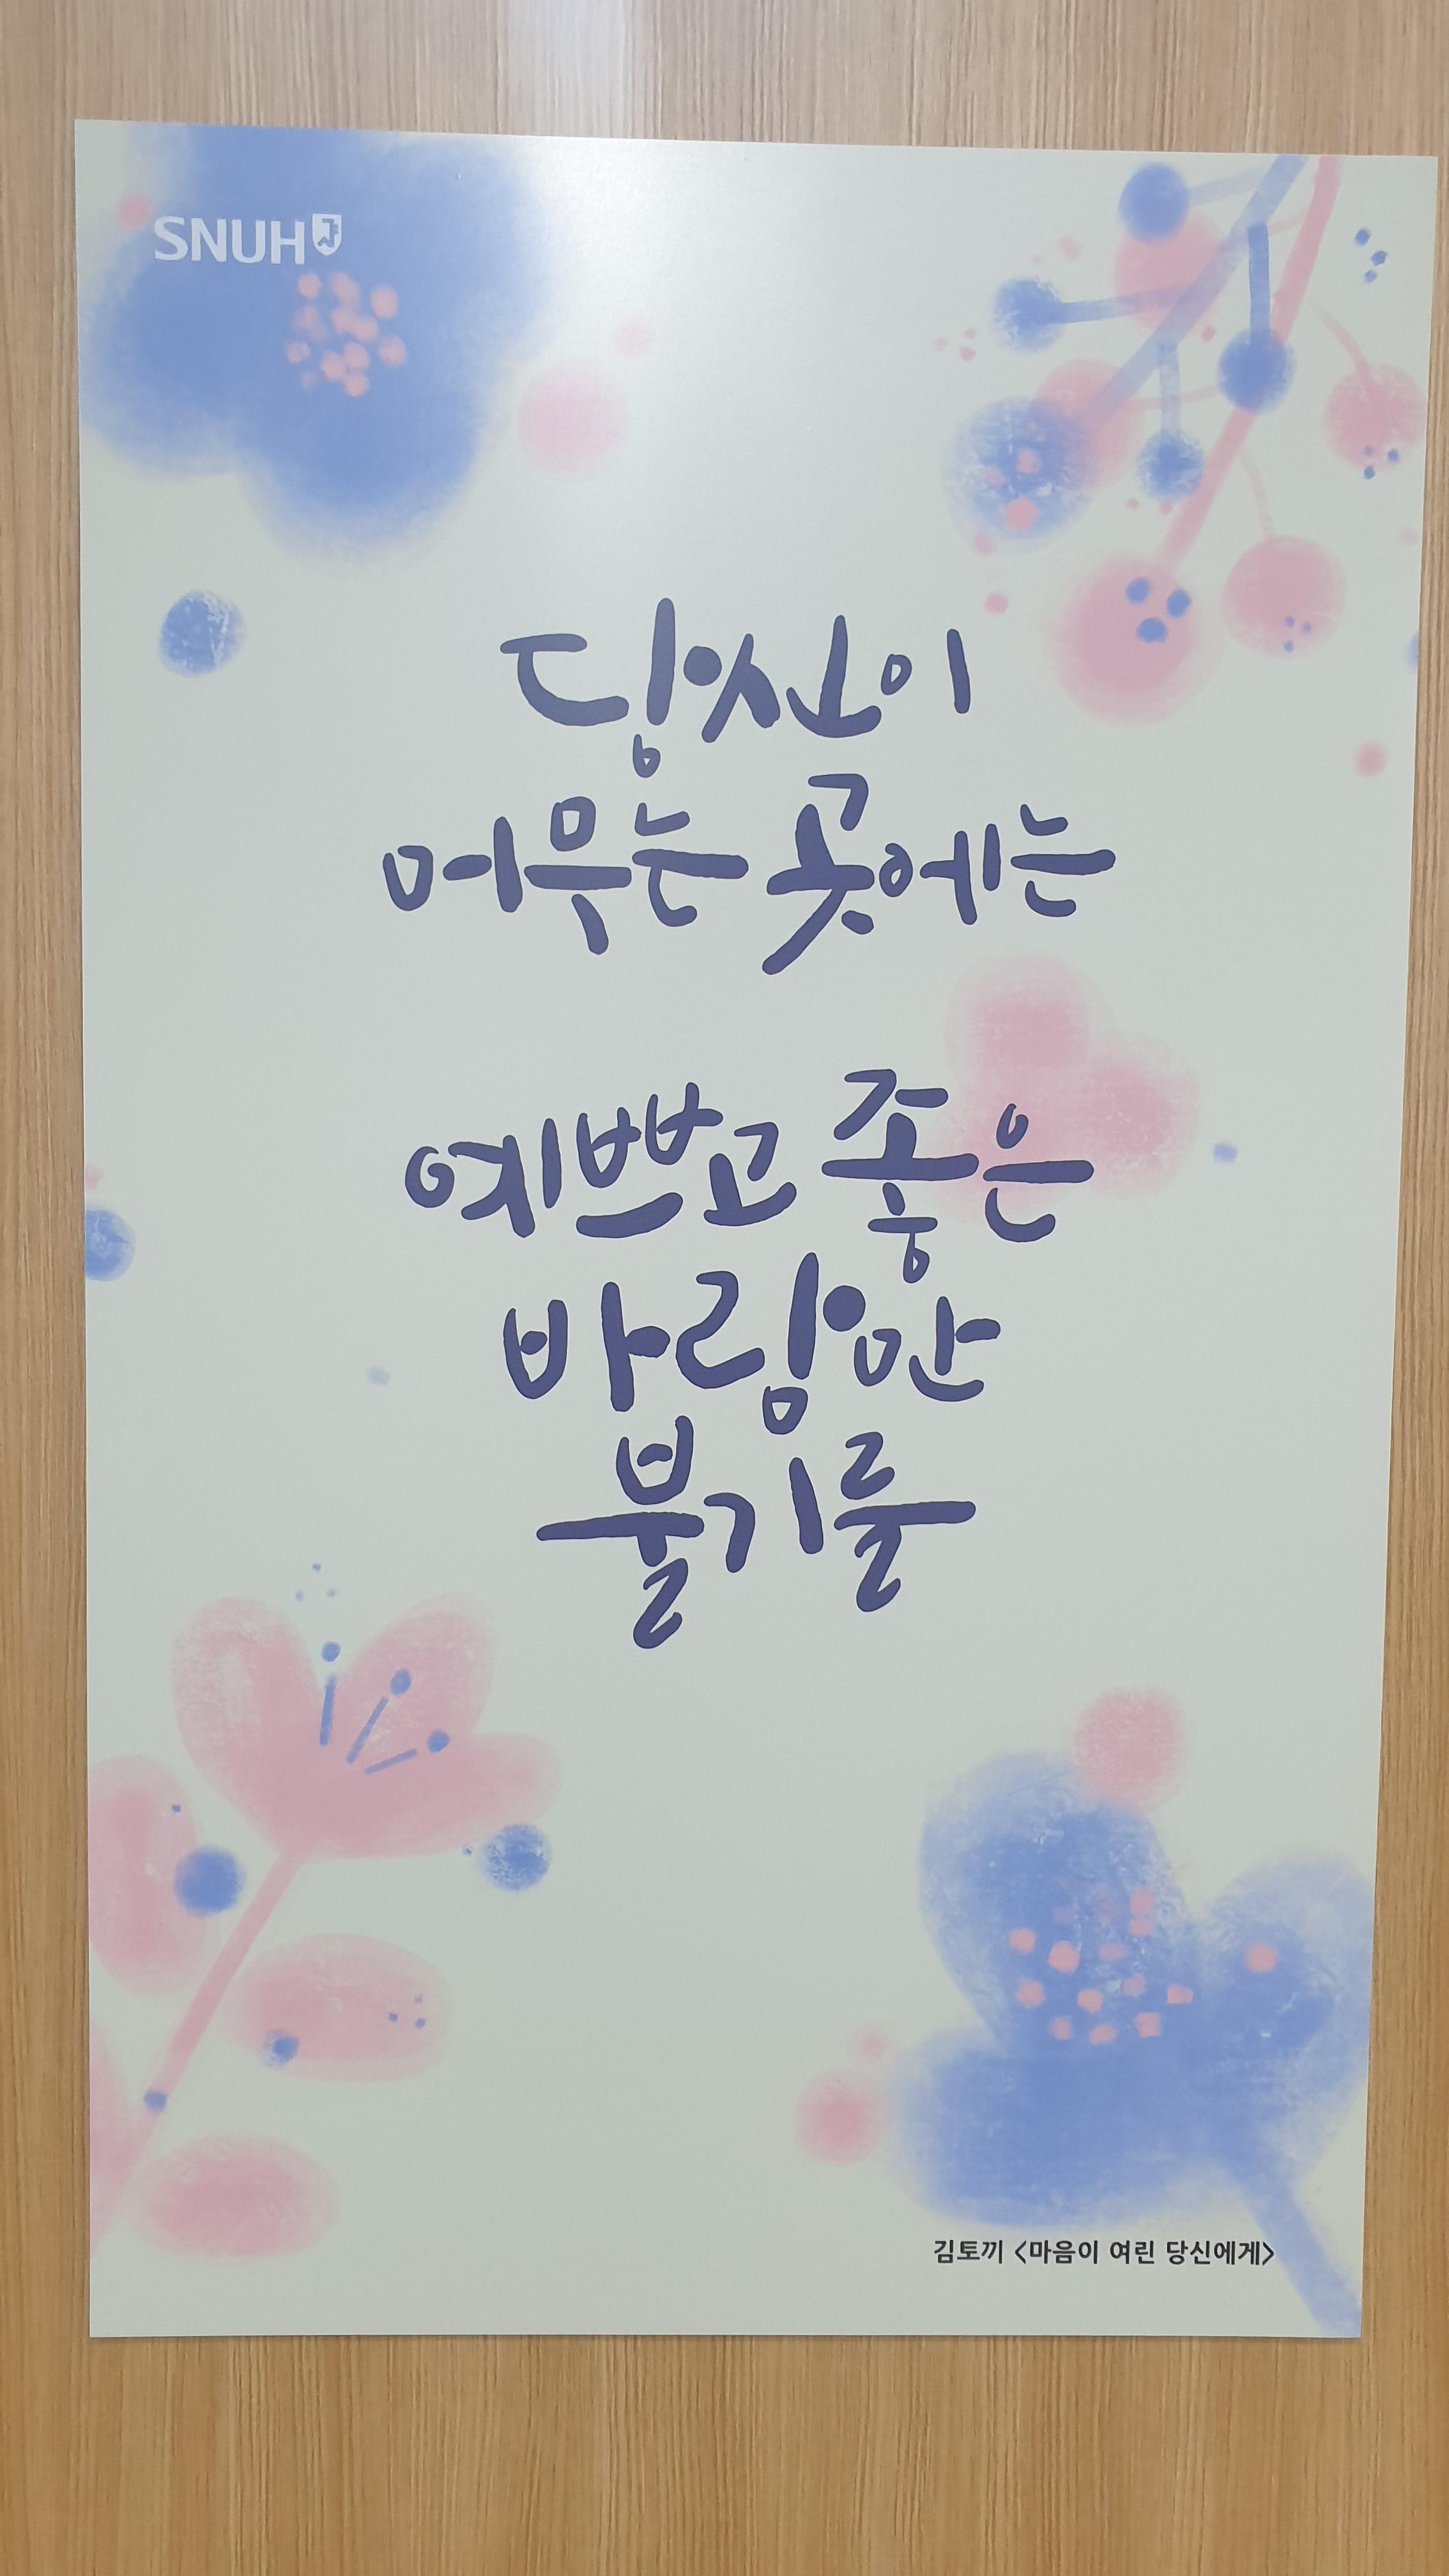 SNUH
당신이
머무는 곳에는
예쁘고 좋은
바람만
불기를
김토끼 <마음이 여린 당신에게>